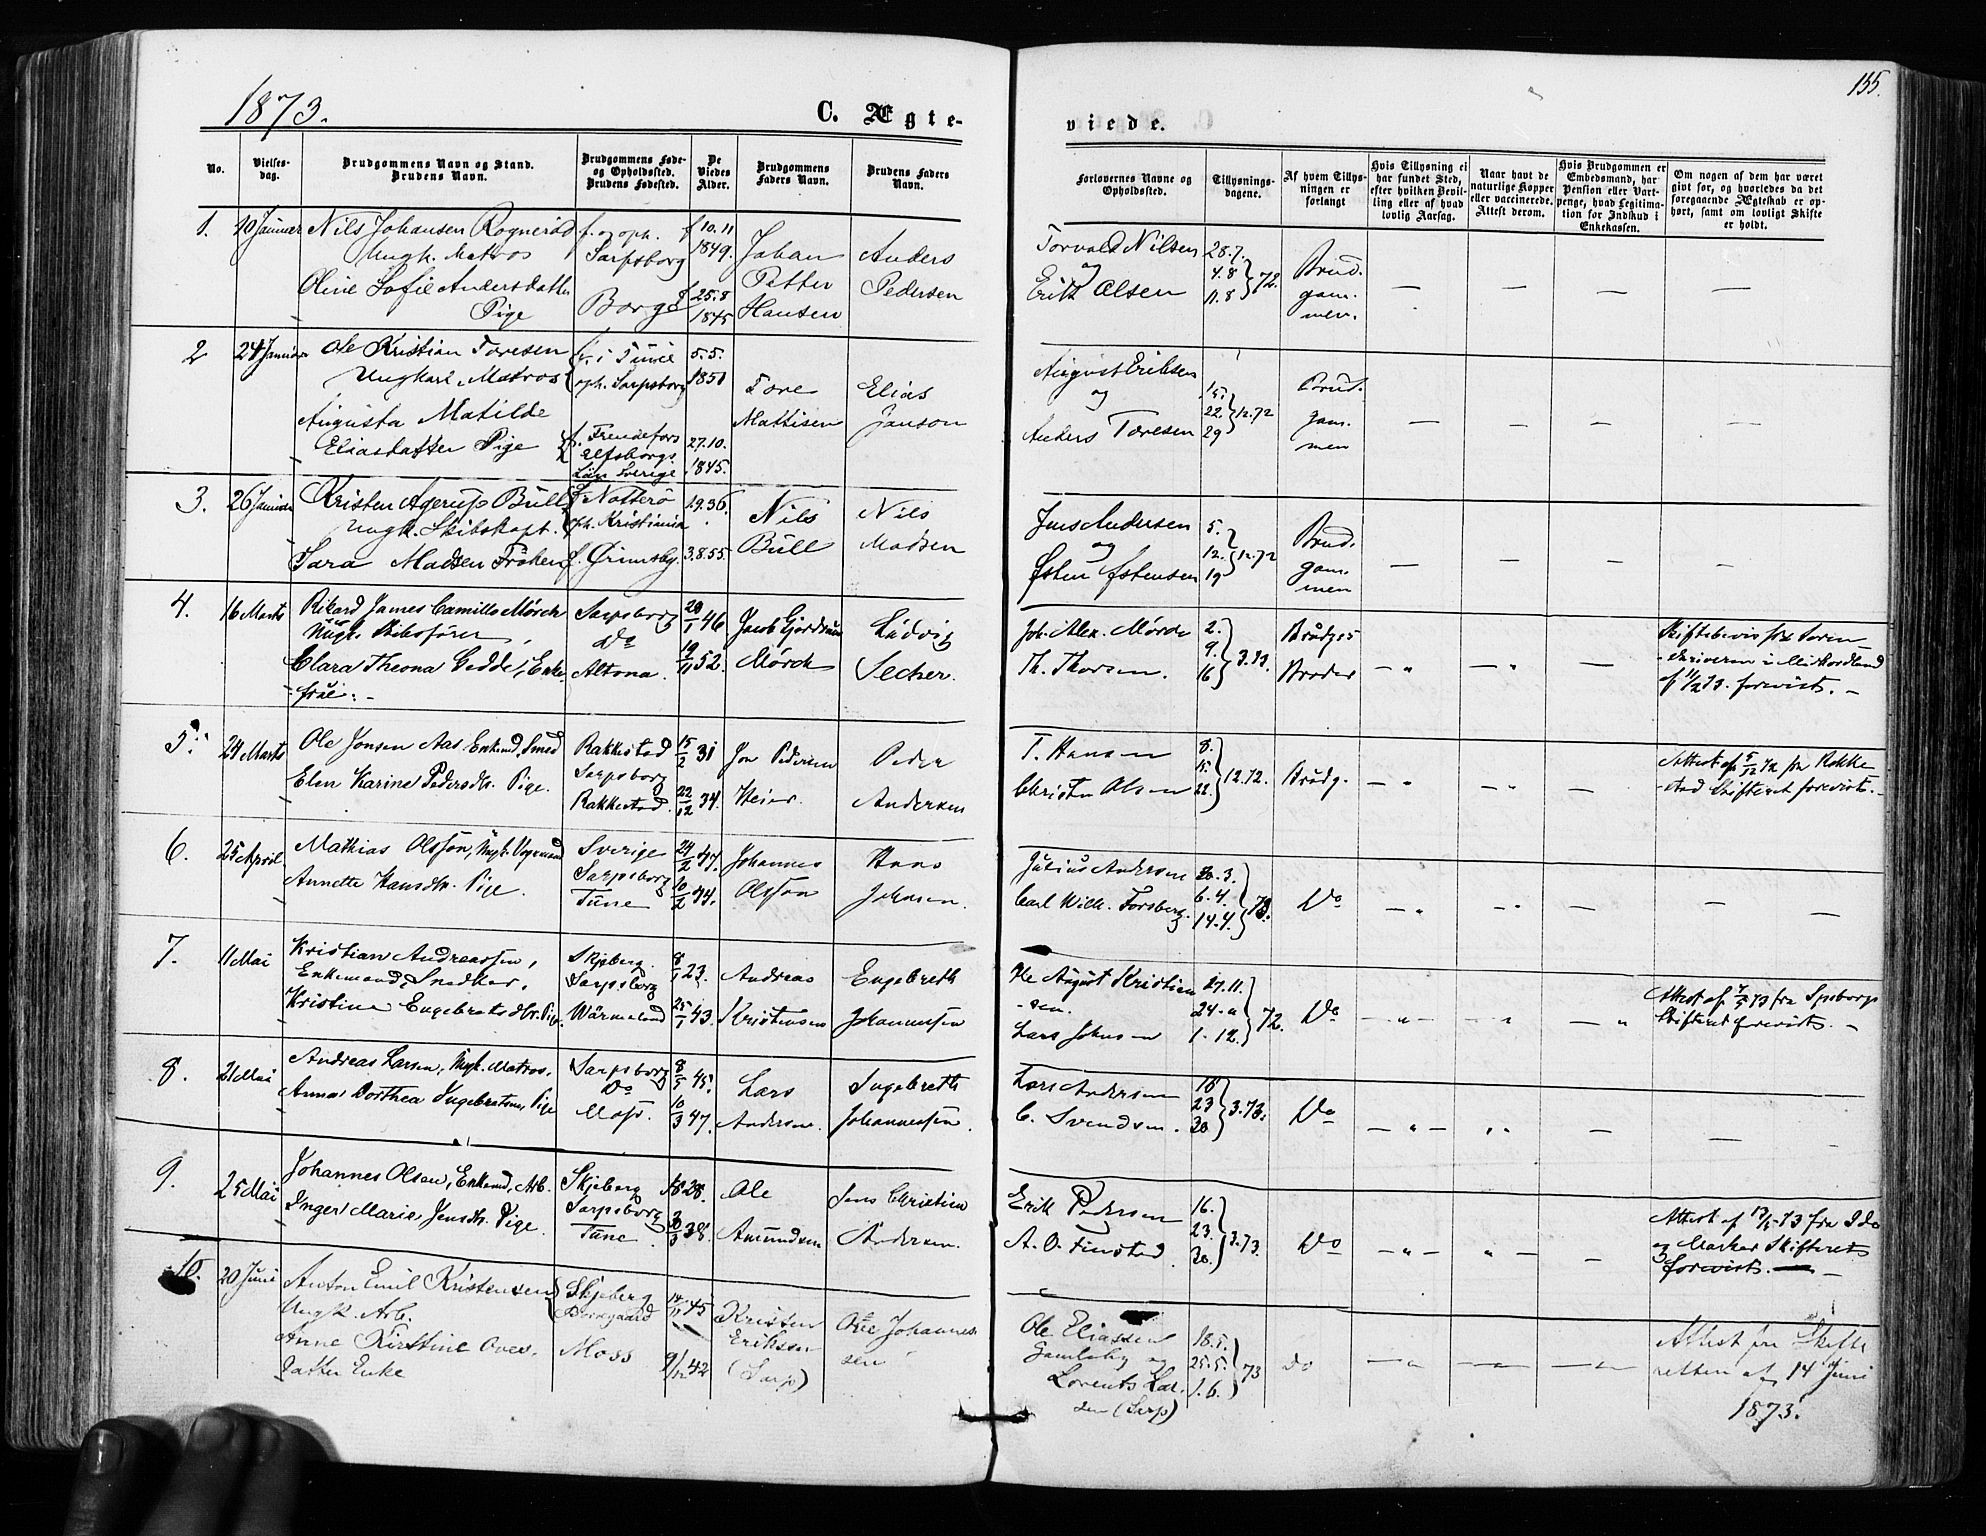 1873.
C. Ægte-
viede.
155.
No.
Vielses-
dag.
Brudgommens Navn og Stand.
Brudens Navn.
Brudgommens Føde-
og Opholdssted.
Brudens Fødested.
De
Viedes
Alder.
Brudgommens
Faders Navn.
Brudens Faders
Navn.
Forlovernes Navne og
Opholdssted.
Tillysnings-
dagene.
Af hvem Tillys-
ningen er
forlangt
Hvis Tillysning ei
har fundet Sted,
efter hvilken Bevil-
ling eller af hvad
lovlig Aarsag.
Naar havt de
naturlige Kopper
eller vaccinerede.
Attest derom.
Hvis Brudgommen er
Embedsmand, har
Pension eller Vart-
penge, hvad Legitima-
tion for Indskud i
Enkekassen.
Om nogen af dem har været
givt før, og hvorledes da det
foregaaende Ægteskab er op-
hørt, samt om lovligt Skifte
er holdt.
1. 10 Januar
Nils Johansen Rognerød
Ungk. Matros
Oline Sofie Andersdatter
Pige
f. og oph.
Sarpsborg
Borge
f 10.11
1849.
f 25.8
1845
Johan
Petter
Hansen
Anders
Pedersen
Torvald Nilsen
og
Erik Olsen
28.7.
4.8
11.8
72.
Brud.
gom.
men.
2 24 Januar
Ole Kristian Toresen
Ungkarl Matros
Augusta Matilde
Eliasdatter Pige
f. i Tune
oph. Sarpsborg
f. Frendefors
Elfsborgs
Län Sverige
5.5.
1851
27.10.
1845.
Tore
Mattisen
Elias
Janson
August Eriksen
og
Anders Toresen
15.
22.
29
12.72
Brud.
gom.
men
3. 26 Januar
Kristen Agerup Bull
Ungk. Skibskapt.
Sara Madsen Frøken
f. Nøtterø
oph. Kristiania
f. Grimsby.
29.36.
3.8.55.
Nils
Bull
Nils
Madsen
Jens Andersen
og
Østen Østensen
5.
12.
19
12.72
Brud.
gom.
men
4. 16 Marts
Rikard James Camillo Mørch
Ungk. Skibsfører
Clara Theona Gedde, Enke-
frue.
Sarpsborg
Do
Altona.
20/1 46
19/11 52.
Jacob Gjerdrum
Mørch
Ludvig
Secher.
Joh. Alex. Mørch
Th. Thorsen.
2.
9.
16
3.73.
Brudges
Broder
Skiftebevis fra Soren-
skriveren i Mikordland
af 11/2 73. forevist.
5. 24 Marts
Ole Jonsen Aas Enkemd, Smed
Elen Karine Pedersdtr. Pige.
Rakkestad
Sarpsborg
Rakkestad.
15/2 31
22/12 34.
Jon Pedersen
Heier.
Peder
Andersen
T. Hansen
Christen Olsen
8.
15.
22.
12.72.
Brudg.
Attest af 5/12 72 fra Rakke-
stad Skifteret forevist.
6. 25 April.
Mathias Olsson, Ungk. Vognmand
Annette Hansdtr. Pige.
Sverige
Sarpsborg
Tune
24/2 47.
10/2 44.
Johannes
Olsson
Hans
Johnsen.
Julius Andersen
Carl Wilh. Forsberg.
30.3.
6.4.
14.4.
73.
Do
7. 11 Mai
Kristian Andreassen,
Enkemand, Snedker,
Kristine Engebretsdtr. Pige.
Skjeberg.
Sarpsborg
Wärmeland
8/1 23.
25/1 43.
Andreas
Kristensen
Engebreth
Johannesen
Ole August Kristian-
sen.
Lars Johnsen
17.11.
24. "
1. 12.
72.
Do
forevist.
8. 21 Mai
Andreas Larsen, Ungk. Matros.
Anna Dorthea Ingebretsen, Pige
Sarpsborg
Do
Moss.
8/5 45.
10/3 47.
Lars
Andersen.
Ingebreth
Johannessen.
Lars Andersen
C. Svendsen.
16
23
30
3.73.
Do
9. 25 Mai
Johannes Olsen, Enkemd, Arb.
Inger Marie Jensdtr. Pige.
Skjeberg
Sarpsborg
Tune
28.
38.
Ole
Amundsen
Jens Christian
Andersen.
Erik Pedersen
A. O. Finstad.
16.
23.
30.
3.73.
Do
Attest af 17/5 73 fra Idd
og Marker Skifteret
forevist.
10. 20 Juni
Anton Emil Kristensen
Ungk Arb.
Anne Kirstine Oves-
datter Enke
Skjeberg
Borregaard
Moss
14/11 45
9/12 42
Kristen
Eriksen
(Sarp)
Ove Johannes
sen
Ole Eliassen
Gamleby og
Lorents Lar.
sen (Sarp)
18.5.
25.5.
1.6.
73
do
Attest fra Skifte
retten af 14 Juni
1873.